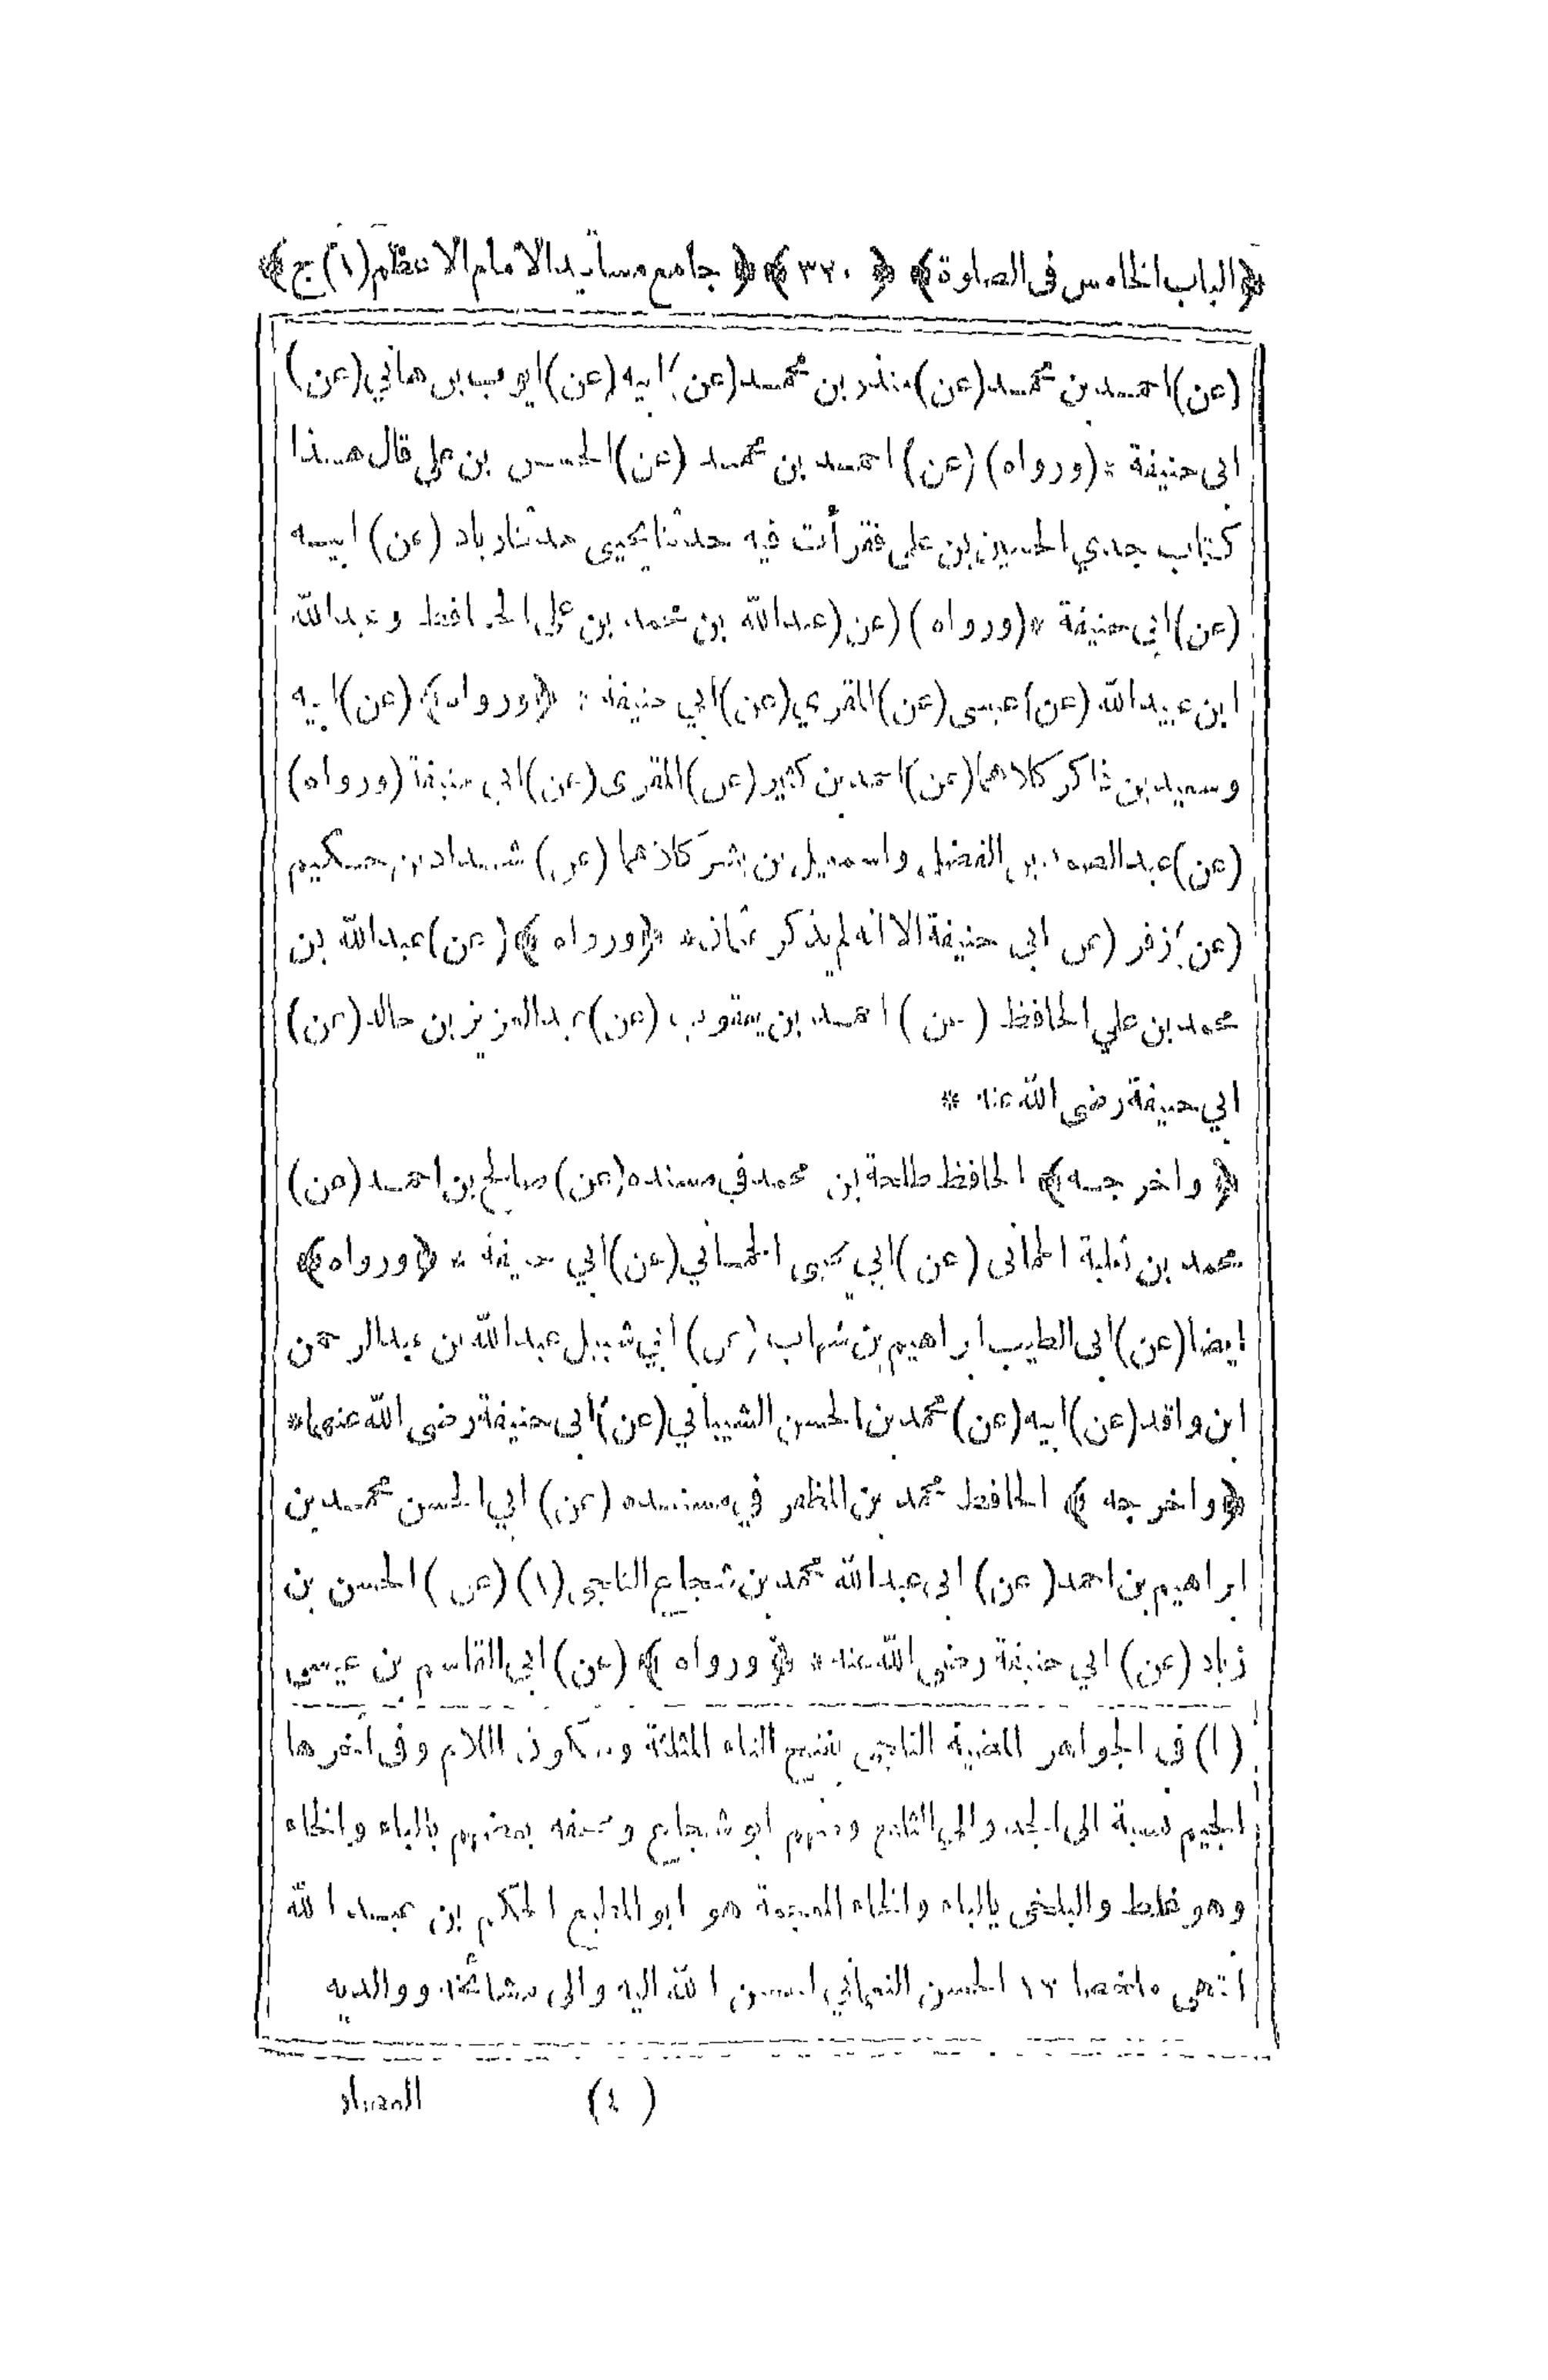 ﴿الباب الخامس فى الصلوة﴾ ﴿٣٢٠﴾ ﴿جامع مسانيد الامام الاعظم(١)ج﴾
(عن)احمد بن محمد(عن)منذر بن محمد(عن)ابيه(عن)ايوب بن هاني(عن)
ابى حنيفة *(ورواه) (عن) احمد بن محمد (عن)الحسين بن على قال هذا
كتاب جدي الحسين بن على فقرأت فيه حدثنا يحيى حدثنا زياد (عن) ابيه
(عن)ابى حنيفة *(ورواه) (عن(عبدالله بن محمد بن على الحافظ وعبدالله
ابن عبيدالله (عن)عيسى(عن)المقري(عن)ابي حنيفة * ﴿ورواه﴾ (عن)ابيه
وسعيد بن ذاكر كلاهما(عن)احمد بن كثير(عن)المقرى(عن)ابى حنيفة (ورواه)
(عن)عبدالصمد بن الفضل واسمعيل بن بشر كلاهما (عن) شداد بن حكيم
(عن)زفر (عن ابى حنيفة الا انه لم يذكر * ﴿ورواه﴾(عن)عبدالله بن
محمد بن علي الحافظ (عن) احمد بن يعقوب (عن)عبدالعزيز بن خالد(عن)
ابي حنيفة رضى الله عنه *
﴿واخرجه﴾ الحافظ طلحة بن محمد في مسنده(عن)صالح بن احمد(عن)
محمد بن ثعلبة الحمانى (عن)ابي يحيى الحماني(عن)ابي حنيفة * ﴿ورواه﴾
ايضا(عن)ابى الطيب ابراهيم بن شهاب (عن) ابي شبيل عبدالله بن عبدالرحمن
ابن واقد(عن)ابيه(عن)محمد بن الحسن الشيباني(عن)ابى حنيفة رضى الله عنهما*
﴿واخرجه﴾ الحافظ محمد بن المظفر في مسنده (عن) ابي الحسن محمد بن
ابراهيم بن احمد(عن) ابى عبدالله محمد بن شجاع الثلجى(١)(عن)الحسن بن
زياد (عن) ابي حنيفة رضى الله عنه* ﴿ورواه﴾ (عن)ابى القاسم بن عيسى
(١) فى الجواهر المضية الثلجى بفتح الثاء المثلثة وسكون اللام وفى اخرها
الجيم نسبة الى الجد والي الثلج ومنهم ابو شجاع وصحفه بعضهم بالباء والخاء
وهو غلط والبلخى بالباء والخاء المعجمة هو ابو المطيع الحكم بن عبد الله
انتهى ملخصا ١٢ الحسن النعماني احسن الله اليه والى مشائخه ووالديه
(٤)